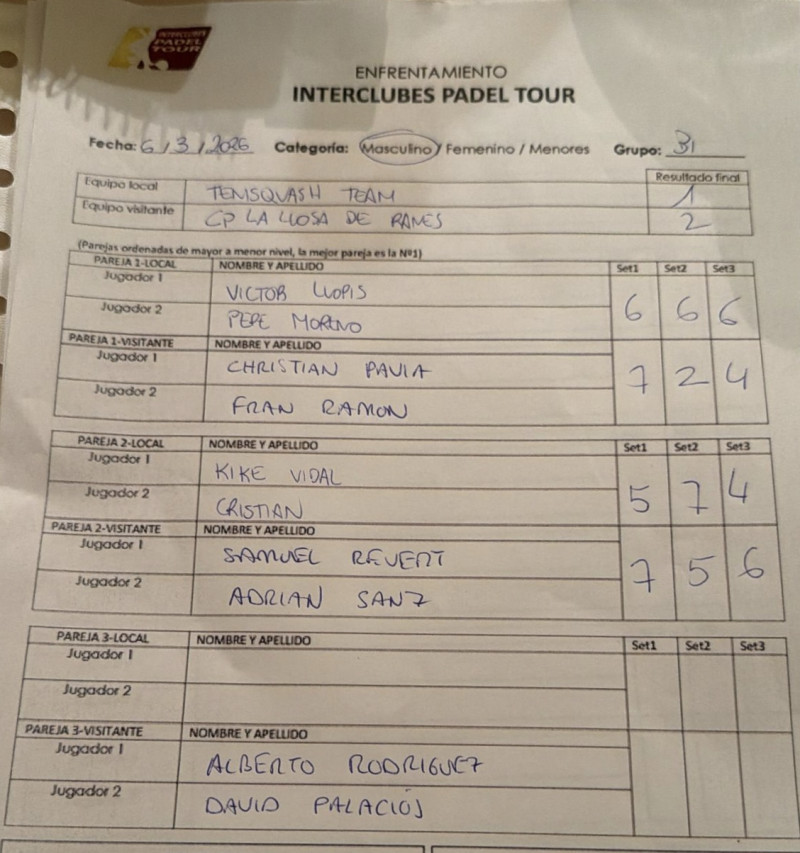 INTERCLUBES
PADEL
TOUR
ENFRENTAMIENTO
INTERCLUBES PADEL TOUR
Fecha: 6/3/2026 Categoría: Masculino / Femenino / Menores Grupo: 31
Resultado final
Equipo local TENISQUASH TEAM 1
Equipo visitante CP LA LLOSA DE RANES 2
(Parejas ordenadas de mayor a menor nivel, la mejor pareja es la Nº1)
PAREJA 1-LOCAL NOMBRE Y APELLIDO Set1 Set2 Set3
Jugador 1 VICTOR LLOPIS
6 6 6
Jugador 2 PEPE MORENO
PAREJA 1-VISITANTE NOMBRE Y APELLIDO
Jugador 1 CHRISTIAN PAVIA
7 2 4
Jugador 2 FRAN RAMON
PAREJA 2-LOCAL NOMBRE Y APELLIDO Set1 Set2 Set3
Jugador 1 KIKE VIDAL
5 7 4
Jugador 2 CRISTIAN
PAREJA 2-VISITANTE NOMBRE Y APELLIDO
Jugador 1 SAMUEL REVERT
7 5 6
Jugador 2 ADRIAN SANZ
PAREJA 3-LOCAL NOMBRE Y APELLIDO Set1 Set2 Set3
Jugador 1
Jugador 2
PAREJA 3-VISITANTE NOMBRE Y APELLIDO
Jugador 1 ALBERTO RODRIGUEZ
Jugador 2 DAVID PALACIOS